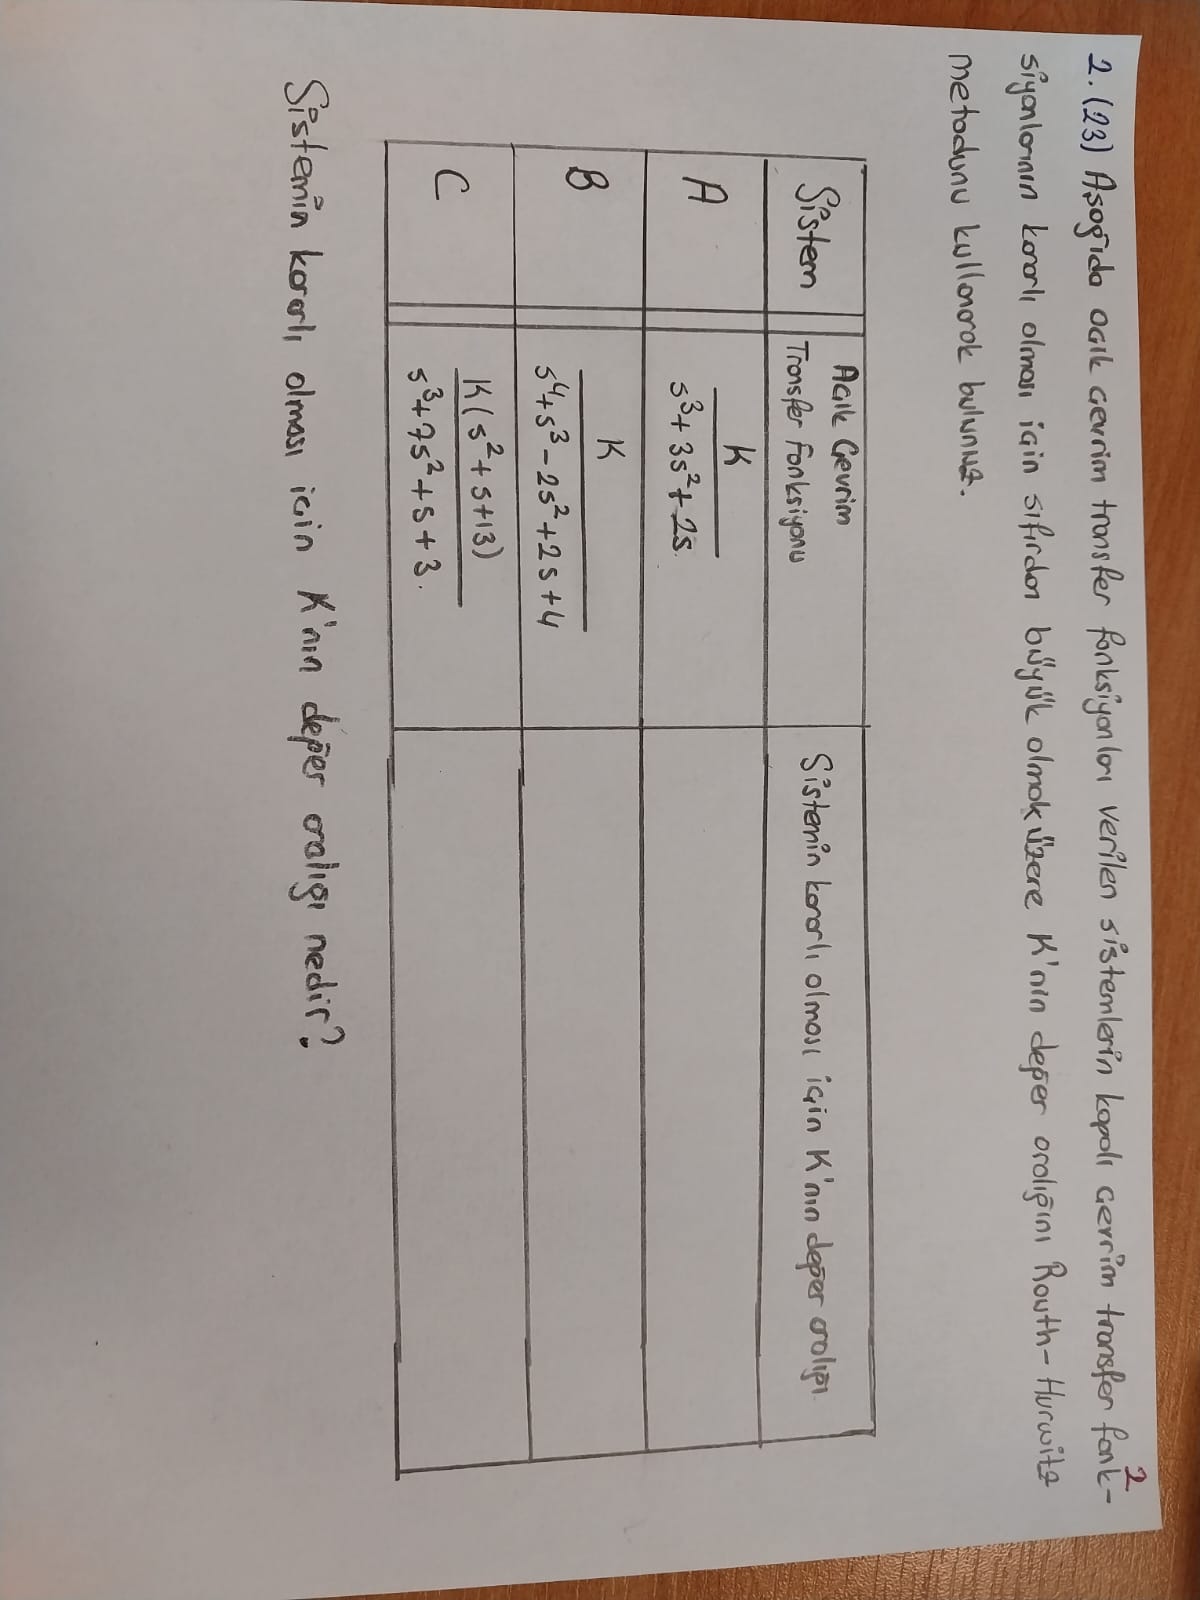 2
2. (23) Aşağıda açık çevrim transfer fonksiyonları verilen sistemlerin kapalı çevrim transfer fonk-
siyonlarının kararlı olması için sıfırdan büyük olmak üzere K'nın değer aralığını Routh-Hurwitz
metodunu kullanarak bulunuz.
Sistem | Açık Çevrim Transfer Fonksiyonu | Sistemin kararlı olması için K'nın değer aralığı.
A | K / (s³+3s²+2s)
B | K / (s⁴+s³-2s²+2s+4)
C | K(s²+s+13) / (s³+7s²+s+3)
Sistemin kararlı olması için K'nın değer aralığı nedir?